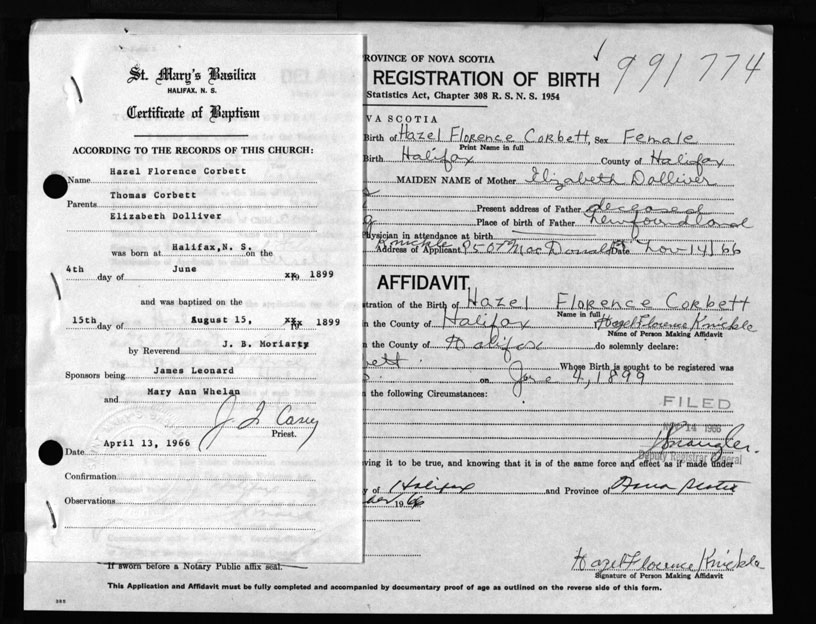 St. Mary's Basilica
HALIFAX, N. S.
Certificate of Baptism
ACCORDING TO THE RECORDS OF THIS CHURCH:
Name Hazel Florence Corbett
Parents Thomas Corbett
Elizabeth Dolliver
was born at Halifax,N. S. on the
4th day of June 1899
and was baptized on the
15th day of August 15, 1899
by Reverend J. B. Moriarty
Sponsors being James Leonard
and Mary Ann Whelan
Priest.
Date April 13, 1966
Confirmation
Observations
ROVINCE OF NOVA SCOTIA
991774
REGISTRATION OF BIRTH
Statistics Act, Chapter 308 R. S. N. S. 1954
VA SCOTIA
Birth of Hazel Florence Corbett, Sex Female
Print Name in full
Birth Halifax County of Halifax
MAIDEN NAME of Mother Elizabeth Dolliver
Present address of Father deceased
Place of birth of Father Newfoundland
Physician in attendance at birth
Knickle Address of Applicant 9507 MacDonald Date Nov 14/66
AFFIDAVIT
stration of the Birth of Hazel Florence Corbett
Name in full
n the County of Halifax Hazel Florence Knickle
Name of Person Making Affidavit
n the County of Halifax do solemnly declare:
bett Whose Birth is sought to be registered was
on June 4, 1899
the following Circumstances:
FILED
14 1966
Deputy Registrar General
ving it to be true, and knowing that it is of the same force and effect as if made under
y of Halifax and Province of Nova Scotia
ber 1966
Hazel Florence Knickle
Signature of Person Making Affidavit
If sworn before a Notary Public affix seal.
This Application and Affidavit must be fully completed and accompanied by documentary proof of age as outlined on the reverse side of this form.